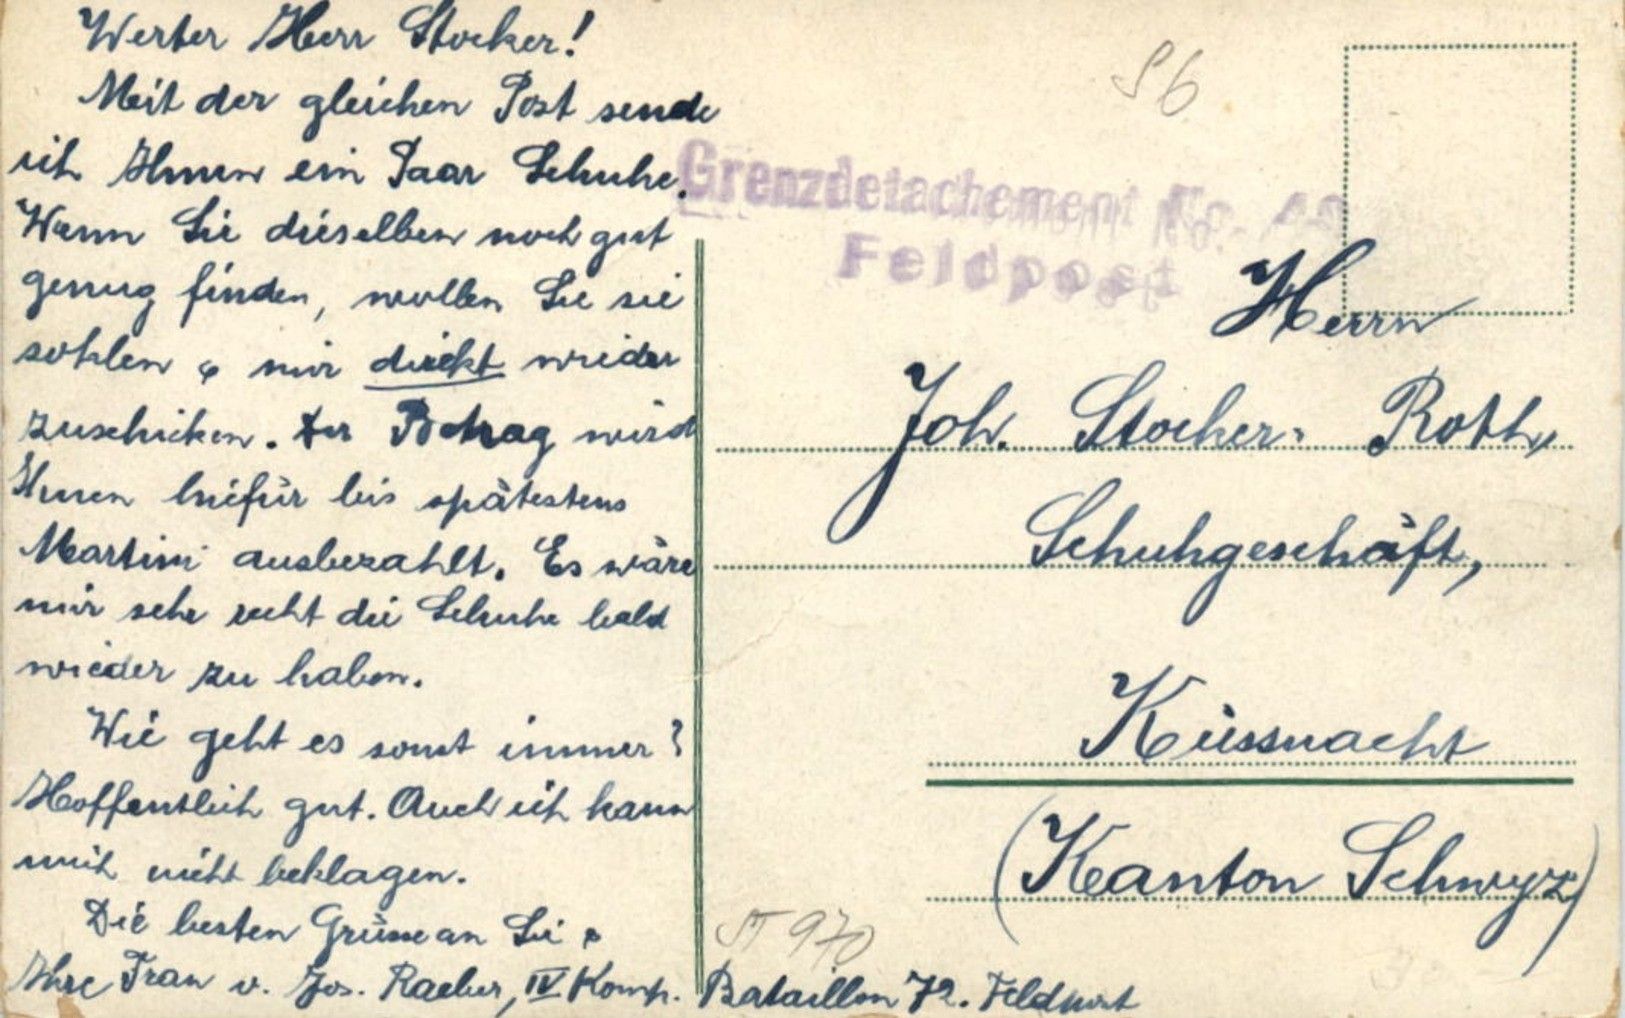 Werter Herr Stocker!
Mit der gleichen Post sende
ich Ihnen ein Paar Schuhe.
Wenn Sie dieselben noch gut
genug finden, wollen Sie sie
sohlen & mir direkt wieder
zuschicken. Der Betrag wird
Ihnen hiefür bis spätestens
Martini ausbezahlt. Es wäre
mir sehr recht die Schuhe bald
wieder zu haben.
Wie geht es sonst immer?
Hoffentlich gut. Auch ich kann
mich nicht beklagen.
Die besten Grüsse an Sie &
Ihre Frau v. Jos. Raeber, IV Komp. Bataillon 72. Feldpost
S6
Grenzdetachement No.
Feldpost
Herrn
Joh. Stocker-Roth,
Schuhgeschäft,
Küssnacht
(Kanton Schwyz)
ST 970